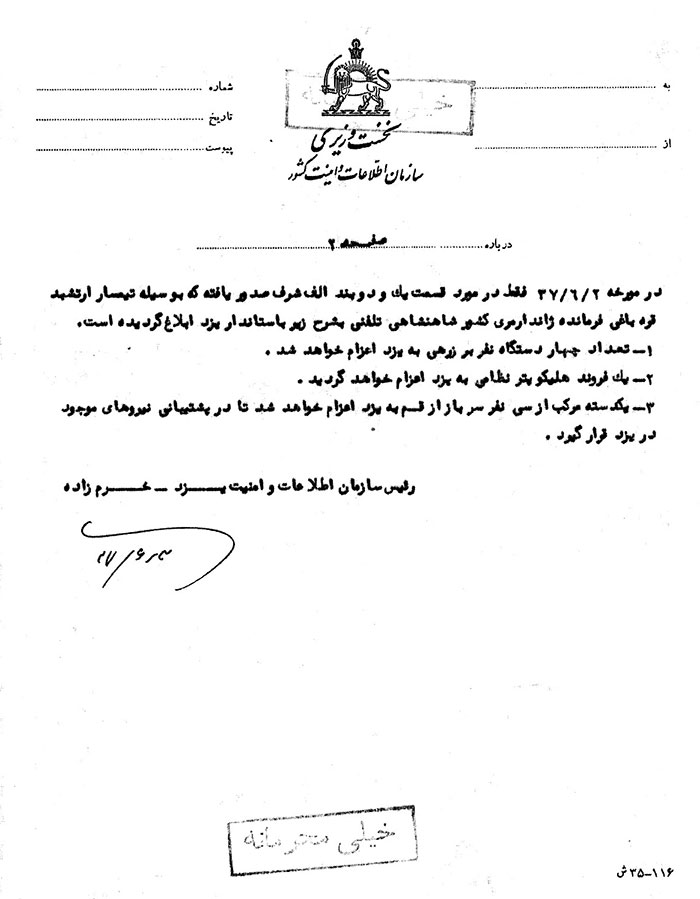 خیلی محرمانه
به
شماره
تاریخ
از
پیوست
نخست وزیری
سازمان اطلاعات و امنیت کشور
درباره صفحه ۲
در مورخه ۳۷/۶/۲ فقط در مورد قسمت یك و دو بند الف شرف صدور یافته که بوسیله تیمسار ارتشبد
قره باغی فرمانده ژاندارمری کشور شاهنشاهی تلفنی بشرح زیر باستاندار یزد ابلاغ گردیده است.
۱ـ تعداد چهار دستگاه نفر بر زرهی به یزد اعزام خواهد شد .
۲ـ یك فروند هلیکوپتر نظامی به یزد اعزام خواهد گردید .
۳ـ یکدسته مرکب از سی نفر سرباز از قم به یزد اعزام خواهد شد تا در پشتیبانی نیروهای موجود
در یزد قرار گیرد .
رئیس سازمان اطلاعات و امنیت یـــزد ـ خـــرم زاده
۳۷/۶/۳
خیلی محرمانه
۱۱۶ـ۳۵ ش